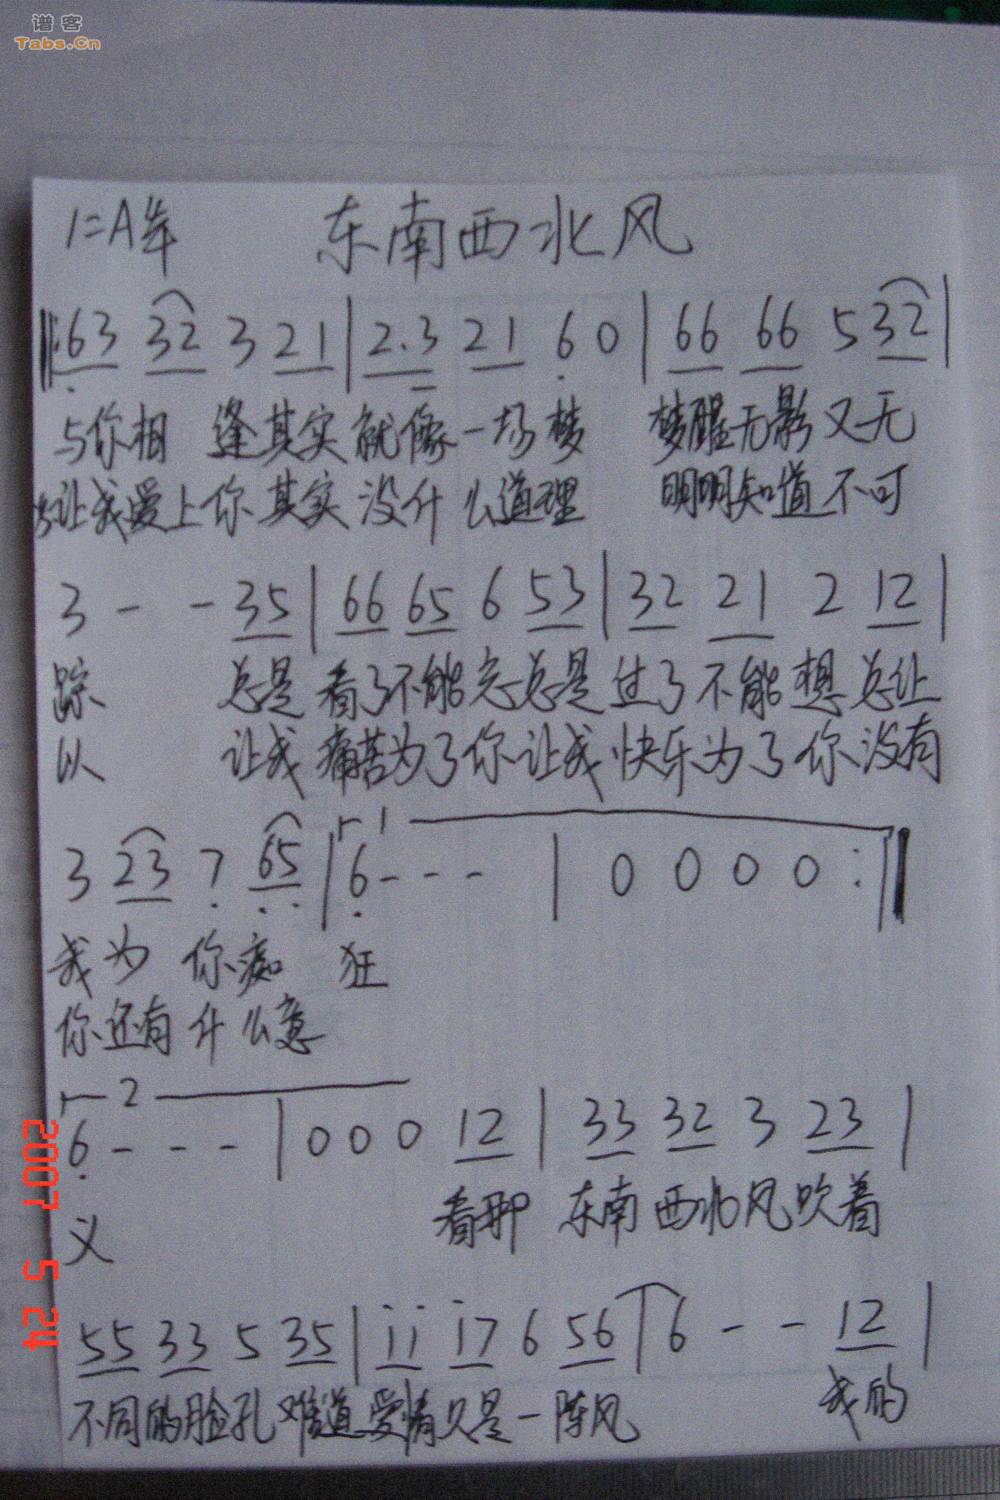 谱客
Tabs.Cn
1=A 4/4 东南西北风
‖:63 32 3 21 | 2.3 21 6 0 | 66 66 5 32 |
与你相 逢其实就像一场梦 梦醒无影又无
让我爱上你其实没什么道理 明明知道不可
3 - - 35 | 66 65 6 53 | 32 21 2 12 |
踪 总是看了不能忘总是过了不能想总让
以 让我痛苦为了你让我快乐为了你没有
1
3 23 7 65 | 6 - - - | 0 0 0 0 :‖
我为你痴狂
你还有什么意
2
6 - - - | 0 0 0 12 | 33 32 3 23 |
义 看那 东南西北风吹着
55 33 5 35 | 11 17 6 56 | 6 - - 12 |
不同的脸孔难道爱情只是一阵风 我的
2007 5 24